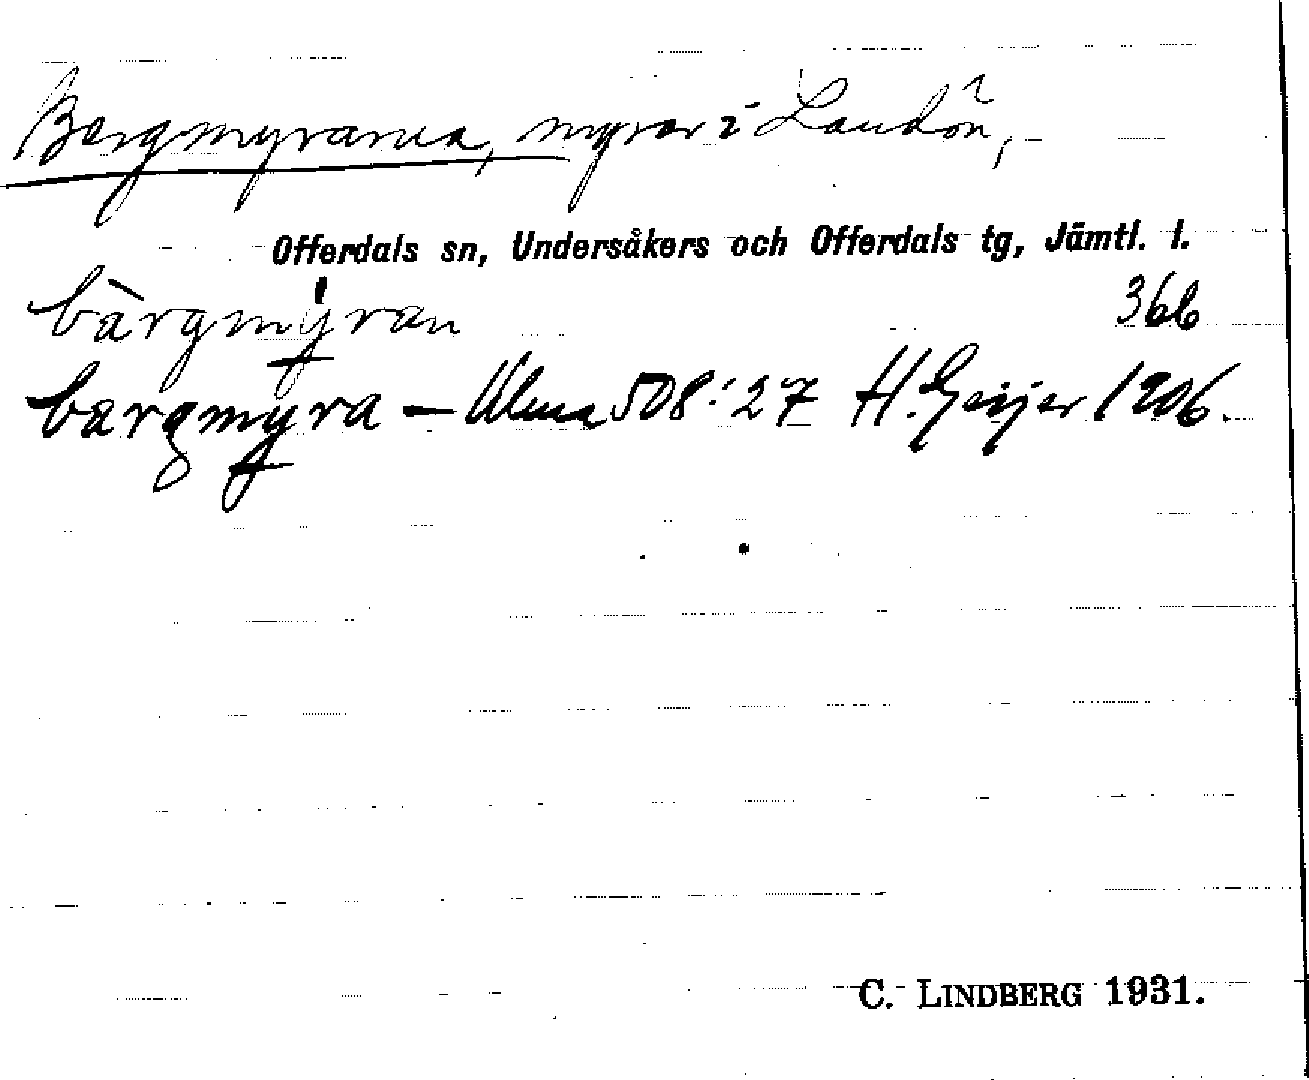 Bergmyrarna, myrar i Landön,
Offerdals sn, Undersåkers och Offerdals tg, Jämtl. l.
bàrgmýran 366
bargmyra – Ulma 508:27 H. Geijer 1906.
C. LINDBERG 1931.